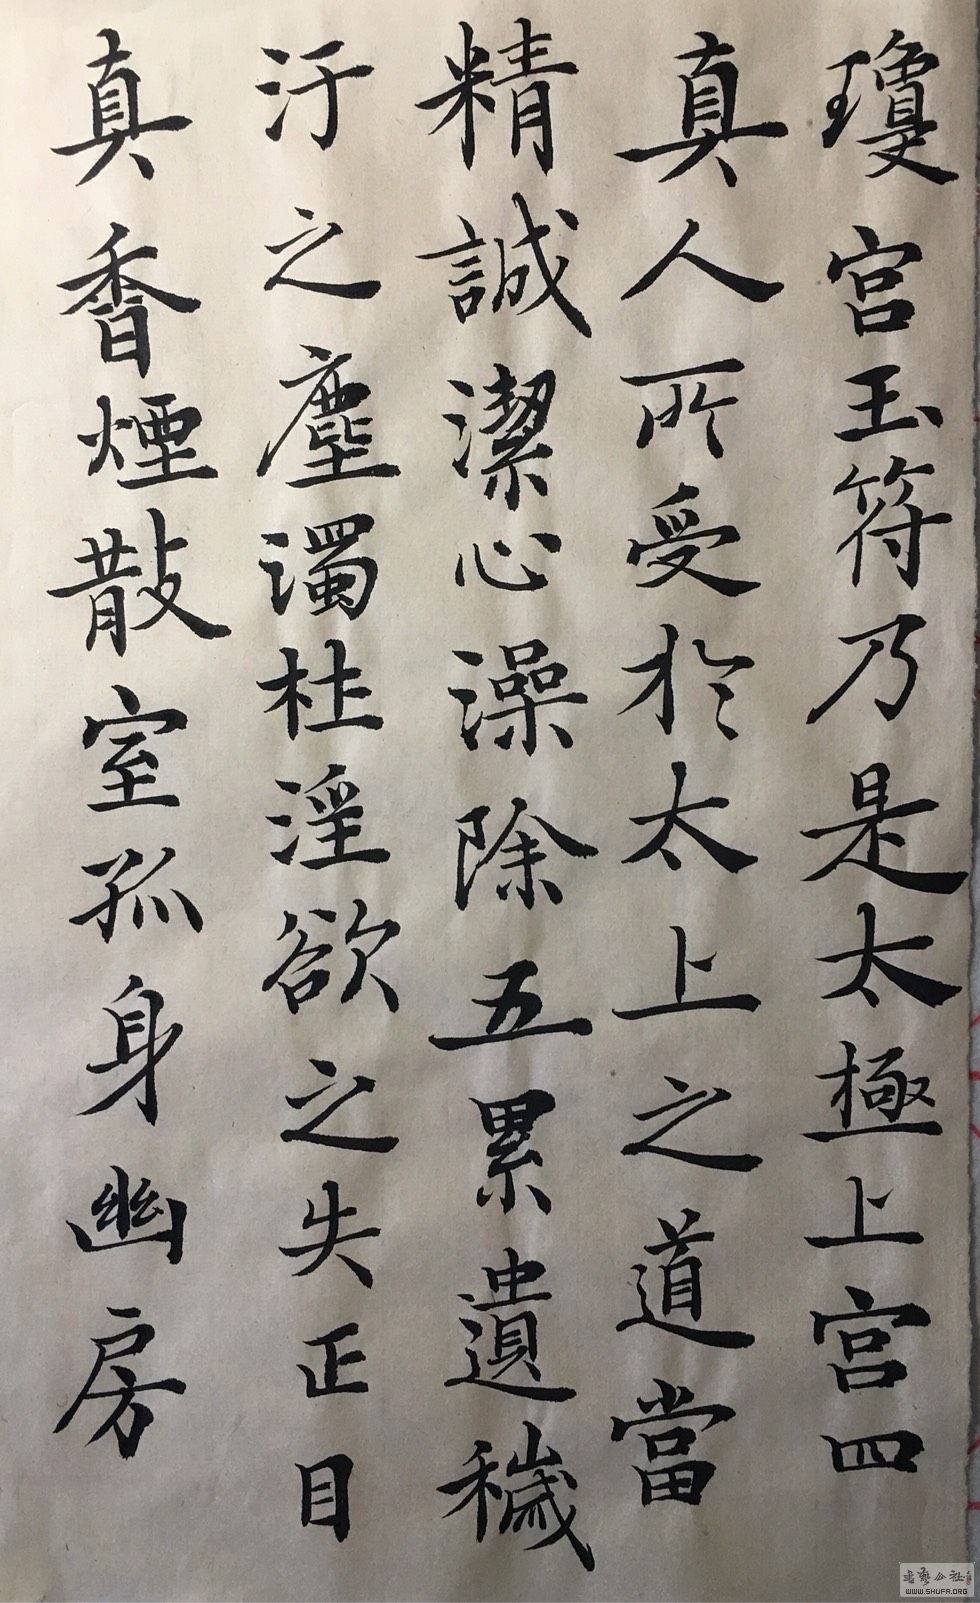 瓊宮玉符乃是太極上宮四
真人所受於太上之道當
精誠潔心澡除五累遺穢
汙之塵濁杜淫欲之失正目
真香煙散室孤身幽房
WWW.SHUFA.ORG